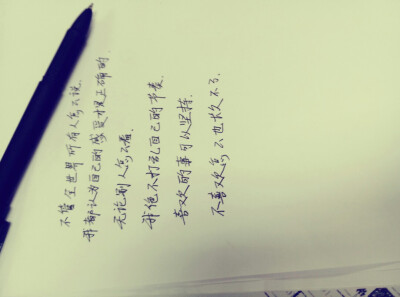 不管全世界所有人怎么说,
我都认为自己的感受才是正确的.
无论别人怎么看.
我绝不打乱自己的节奏.
喜欢的事可以坚持,
不喜欢怎么也长久不了.